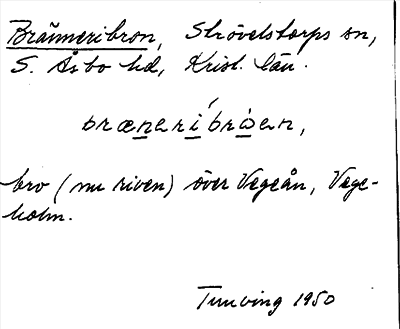 Bränneribron, Strövelstorps sn,
S. Åsbo hd, Krist. län.
brænerıbrɷen,
bro (nu riven) över Vegeån, Vege-
holm.
Tunving 1950